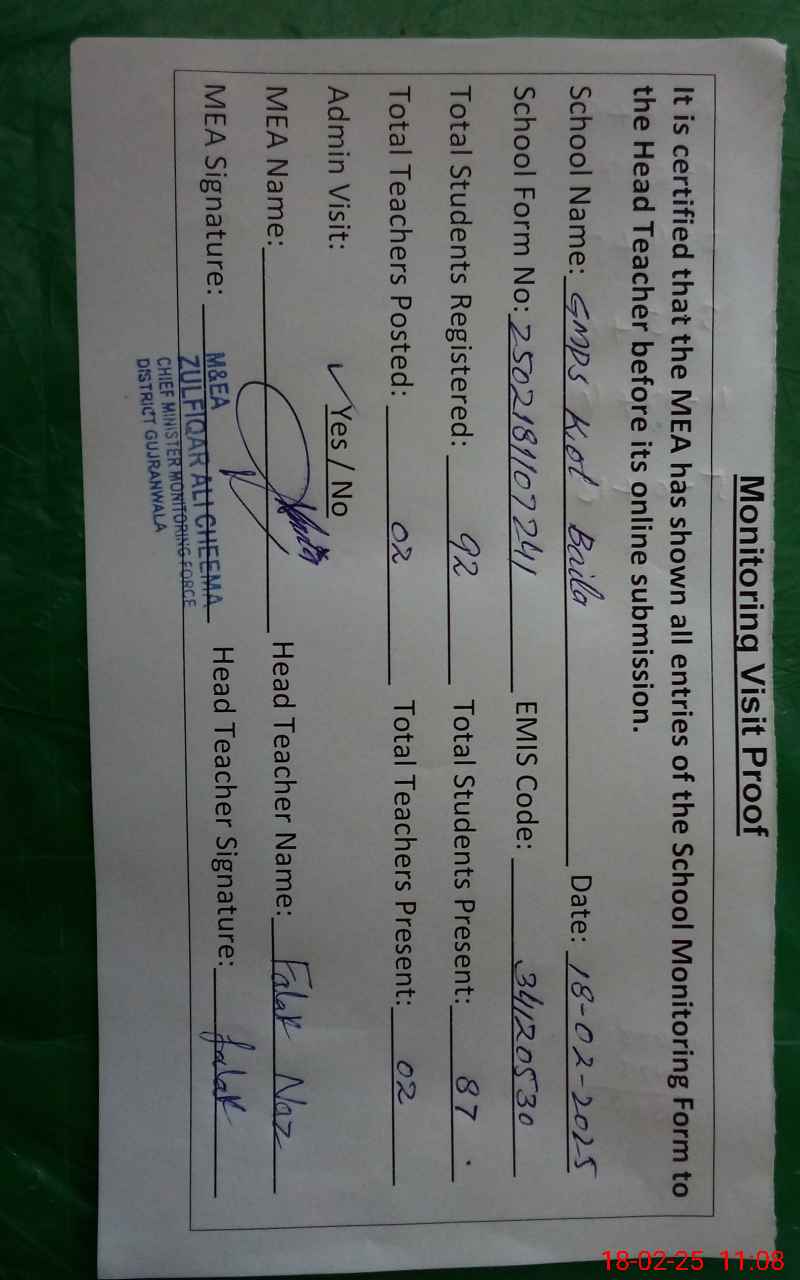 Monitoring Visit Proof
It is certified that the MEA has shown all entries of the School Monitoring Form to
the Head Teacher before its online submission.
School Name: GMPS Kot Baila Date: 18-02-2025
School Form No: 2502181107241 EMIS Code: 34120530
Total Students Registered: 92 Total Students Present: 87
Total Teachers Posted: 02 Total Teachers Present: 02
Admin Visit: ✓ Yes / No
MEA Name: Head Teacher Name: Falak Naz
MEA Signature: Head Teacher Signature: falak
M&EA
ZULFIQAR ALI CHEEMA
CHIEF MINISTER MONITORING FORCE
DISTRICT GUJRANWALA
18-02-25 11:08